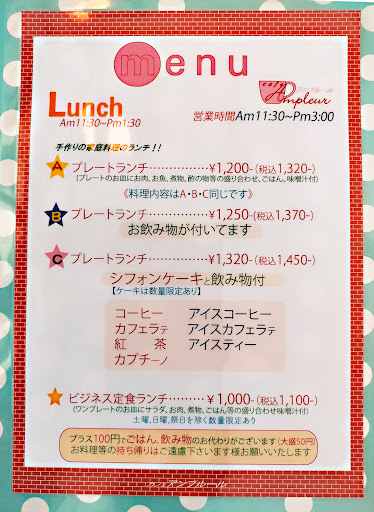 menu
Lunch
Am11:30~Pm1:30
cafe アンプルール
Ampleur
営業時間Am11:30~Pm3:00
手作りの家庭料理のランチ!!
A プレートランチ……………¥1,200-(税込1,320-)
(プレートのお皿にお肉、お魚、煮物、酢の物等の盛り合わせ、ごはん、味噌汁付)
《料理内容はA・B・C同じです》
B プレートランチ……………¥1,250-(税込1,370-)
お飲み物が付いてます
C プレートランチ……………¥1,320-(税込1,450-)
シフォンケーキと飲み物付
【ケーキは数量限定あり】
コーヒー アイスコーヒー
カフェラテ アイスカフェラテ
紅 茶 アイスティー
カプチーノ
ビジネス定食ランチ…………¥1,000-(税込1,100-)
(ワンプレートのお皿にサラダ、お肉、煮物、ごはん等の盛り合わせ味噌汁付)
土曜,日曜,祭日を除く数量限定あり
プラス100円でごはん,飲み物のお代わりがございます(大盛50円)
お料理等の持ち帰りはご遠慮下さいます様お願いいたします
アンプルール